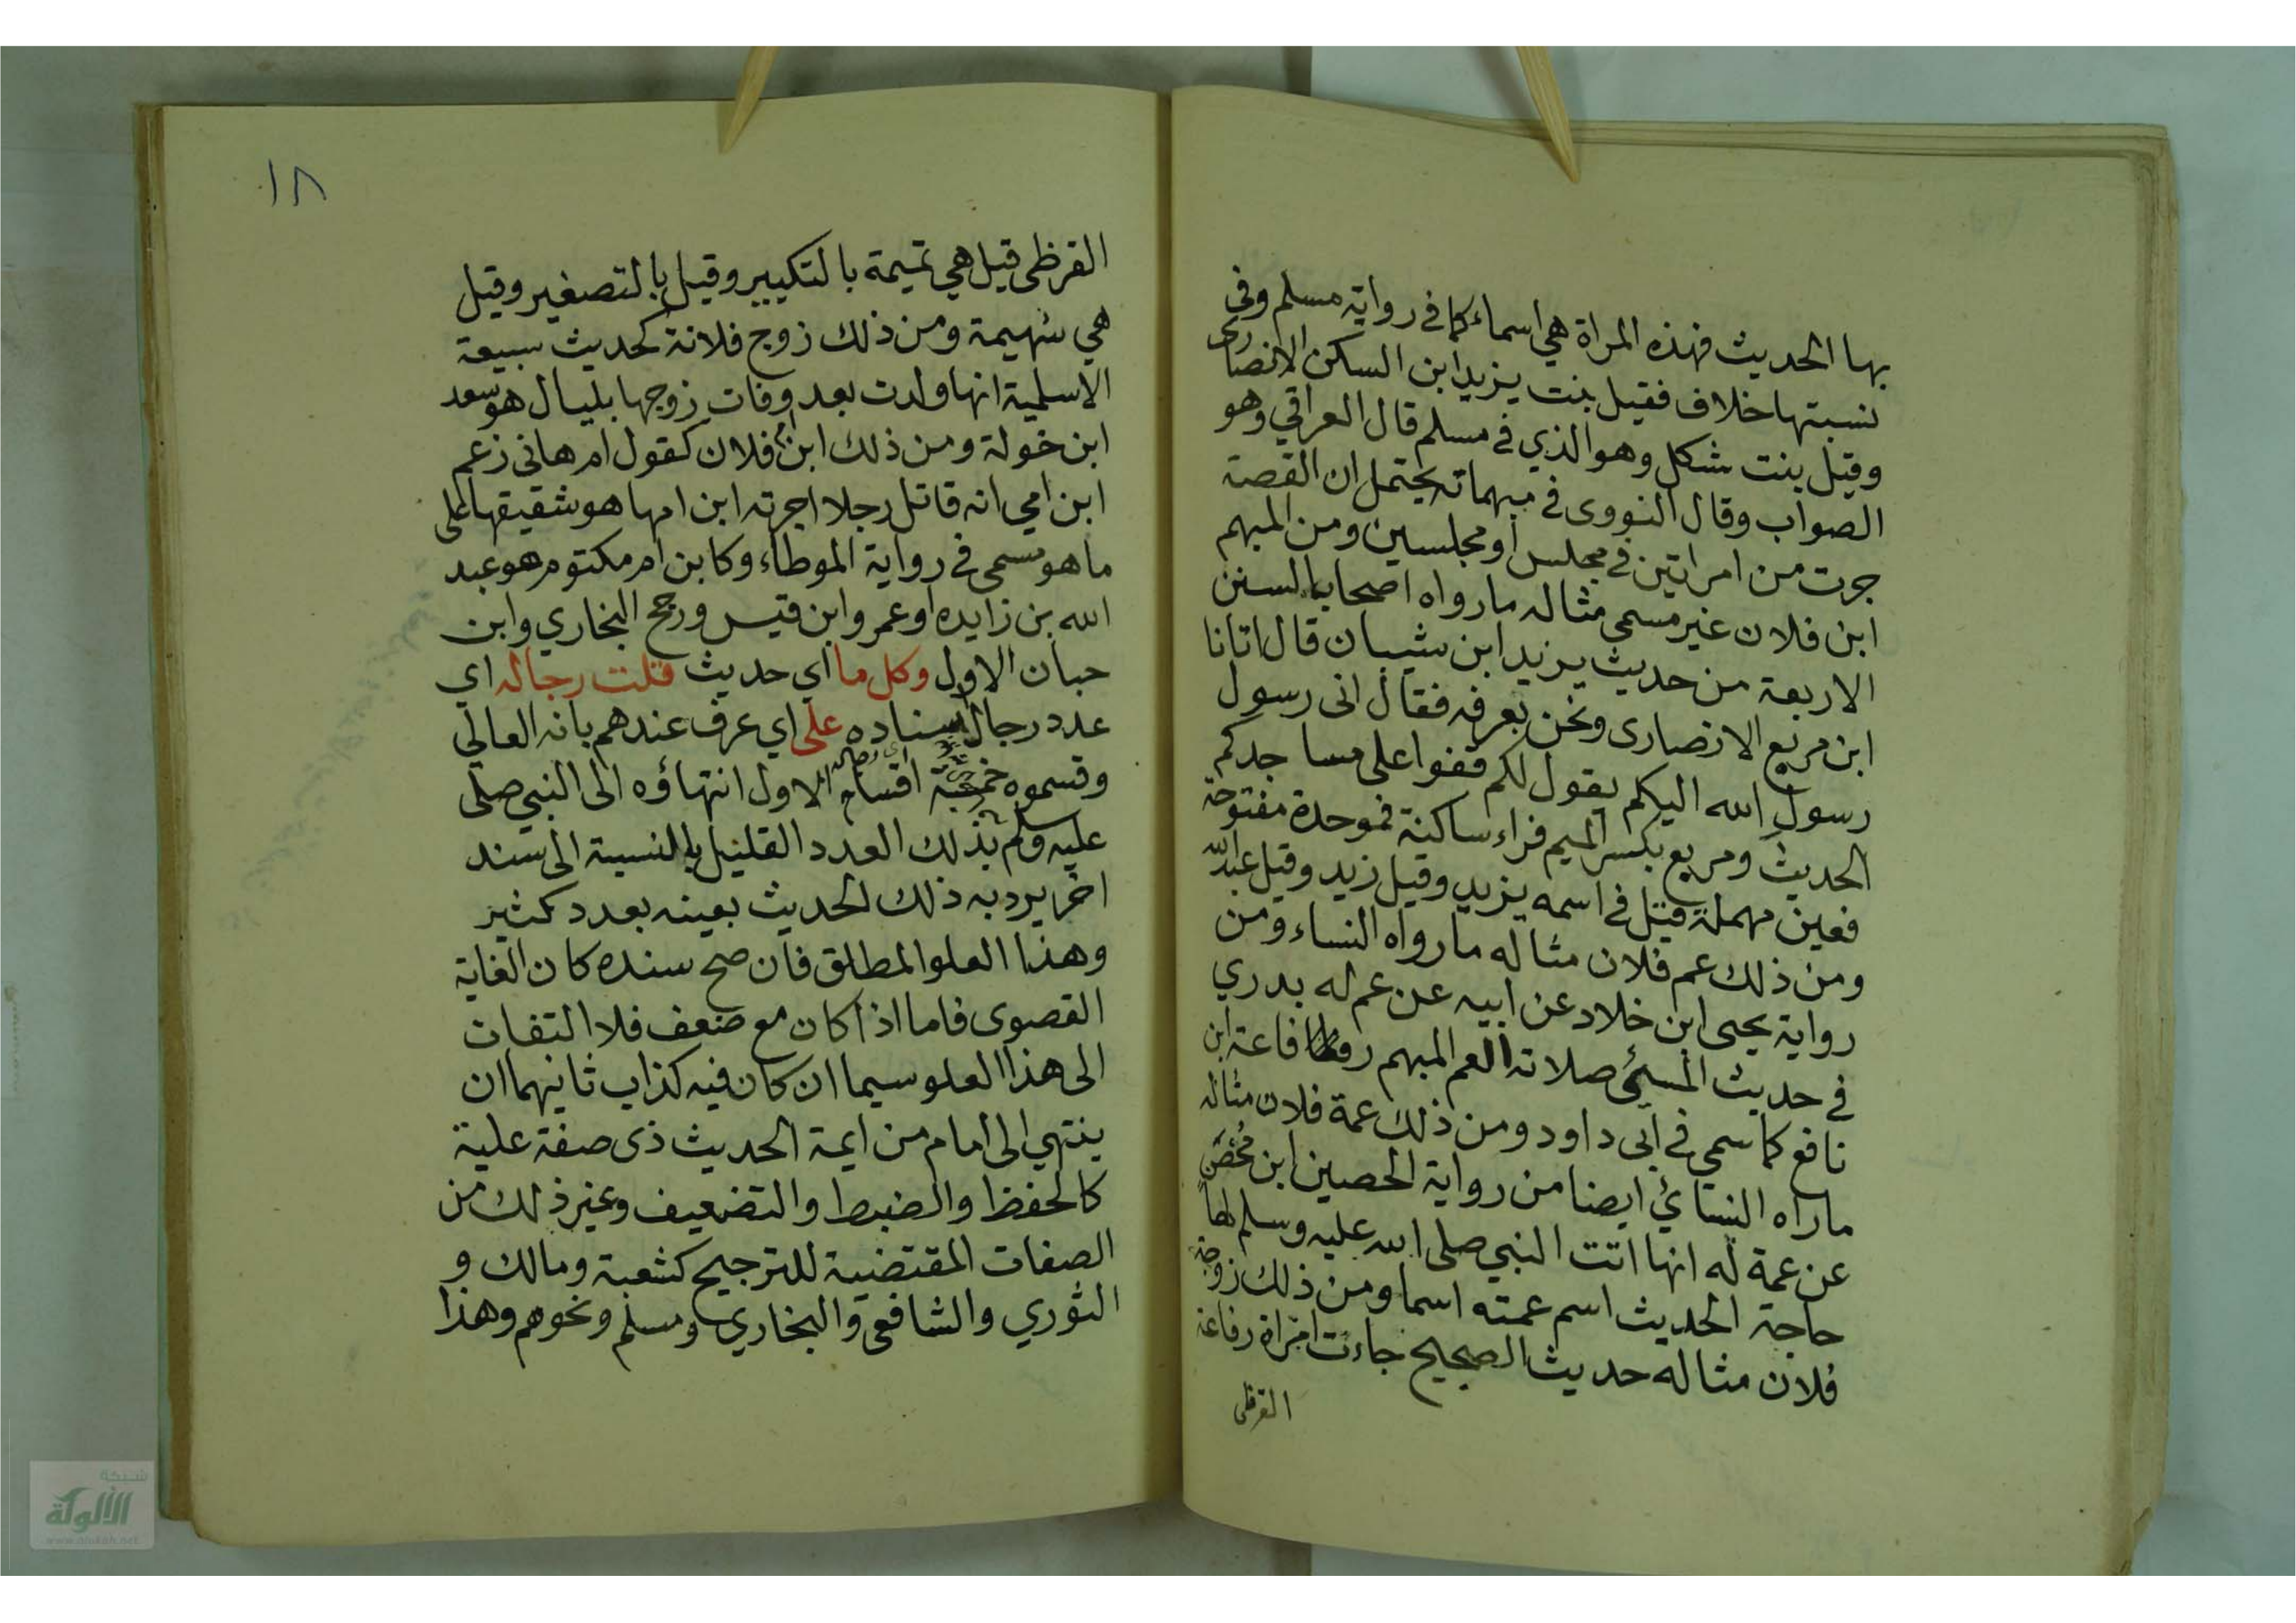 بها الحديث فهذه المراة هي اسماء كما في رواية مسلم وفى
نسبتها خلاف فقيل بنت يزيد ابن السكن الانصارى
وقيل بنت شكل وهو الذي في مسلم قال العراقي وهو
الصواب وقال النووى في مبهماته يحتمل ان القصة
جرت من امراتين في مجلس او مجلسين ومن المبهم
ابن فلان غير مسمى مثاله مارواه اصحاب السنن
الاربعة من حديث يزيد ابن شيبان قال اتانا
ابن مربع الانصارى ونحن بعرفه فقال انى رسول
رسول الله اليكم يقول لكم قفوا على مساجدكم
الحديث ومربع بكسر الميم فراء ساكنة فموحدة مفتوحة
فعين مهملة قيل في اسمه يزيد وقيل زيد وقيل عبد الله
ومن ذلك عم فلان مثاله مارواه النساء ومن
رواية يحيى ابن خلاد عن ابيه عن عم له بدري
في حديث المسئ صلاته العم المبهم رفاعة ابن
نافع كما سمي في ابى داود ومن ذلك عمة فلان مثاله
ماراه النسائي ايضا من رواية الحصين ابن محصن
عن عمة له انها اتت النبي صلى الله عليه وسلم لها
حاجة الحديث اسم عمته اسما ومن ذلك زوجة
فلان مثاله حديث الصحيح جاءت امراة رفاعة
القرظى
١٨
القرظى قيل هي تميمة بالتكبير وقيل بالتصغير وقيل
هي سهيمة ومن ذلك زوج فلانة كحديث سبيعة
الاسلمية انها ولدت بعد وفات زوجها بليال هو سعد
ابن خولة ومن ذلك ابن ام فلان كقول ام هانى زعم
ابن امي انه قاتل رجلا اجرته ابن امها هو شقيقها على
ما هو مسمى في رواية الموطاء وكابن ام مكتوم هو عبد
الله بن زايده او عمرو ابن قيس ورجح البخاري وابن
حبان الاول وكل ما اي حديث قلت رجاله اي
عدد رجال اسناده على اي عرف عندهم بانه العالي
وقسموه خمسة اقسام الاول انتهاؤه الى النبي صلى
عليه وسلم بذلك العدد القليل بالنسبة الى سند
اخر يرد به ذلك الحديث بعينه بعدد كثير
وهذا العلو المطلق فان صح سنده كان الغاية
القصوى فاما اذا كان مع ضعف فلا التفات
الى هذا العلو سيما ان كان فيه كذاب ثانيهما ان
ينتهي الى امام من ايمة الحديث ذى صفة علية
كالحفظ والضبط والتضعيف وغير ذلك من
الصفات المقتضية للترجيح كشعبة ومالك و
الثوري والشافعى والبخاري ومسلم ونحوهم وهذا
شبكة
الألوكة
www.alukah.net